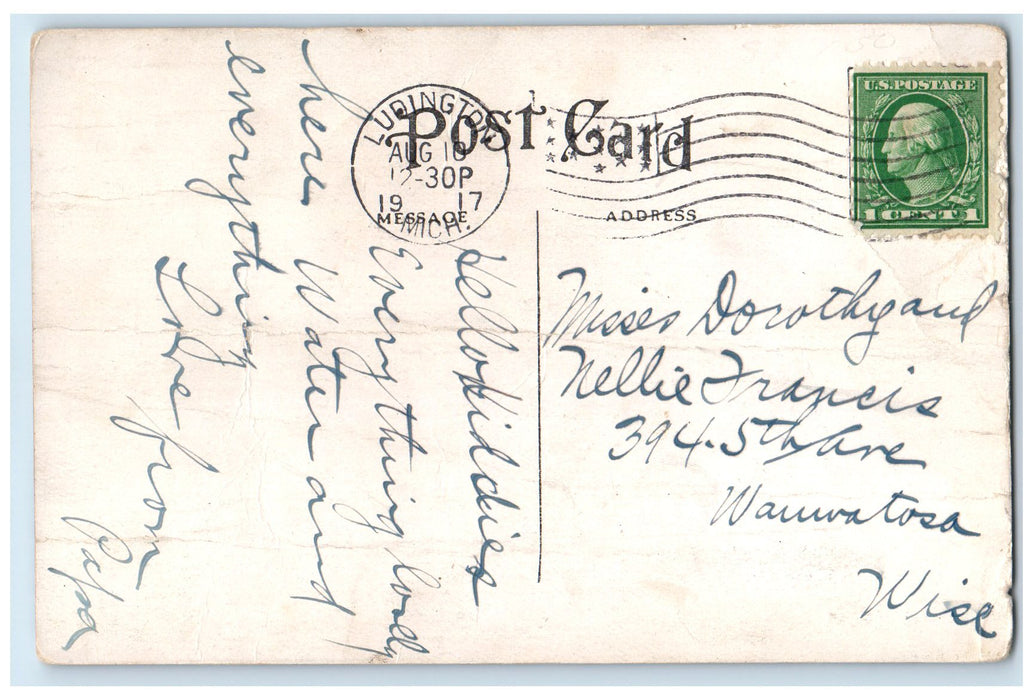 Post Card
LUDINGTON
AUG 10
12-30P
19 17
MICH.
U.S. POSTAGE
1 CENT 1
MESSAGE
ADDRESS
Hello Kiddies
Everything lovely
here Water and
everything
Love from
Papa
Misses Dorothy and
Nellie Francis
394-5th Ave
Wauwatosa
Wisc